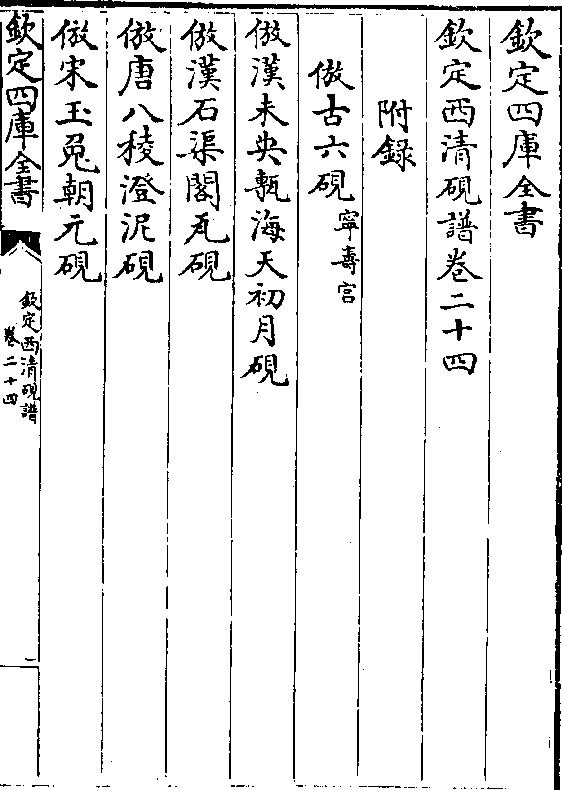 欽定四庫全書
欽定西清硯譜卷二十四
附録
倣古六硯寧壽宮
倣漢未央甎海天初月硯
倣漢石渠閣瓦硯
倣唐八稜澄泥硯
倣宋玉兔朝元硯
欽定四庫全書
欽定西清硯譜
卷二十四
一